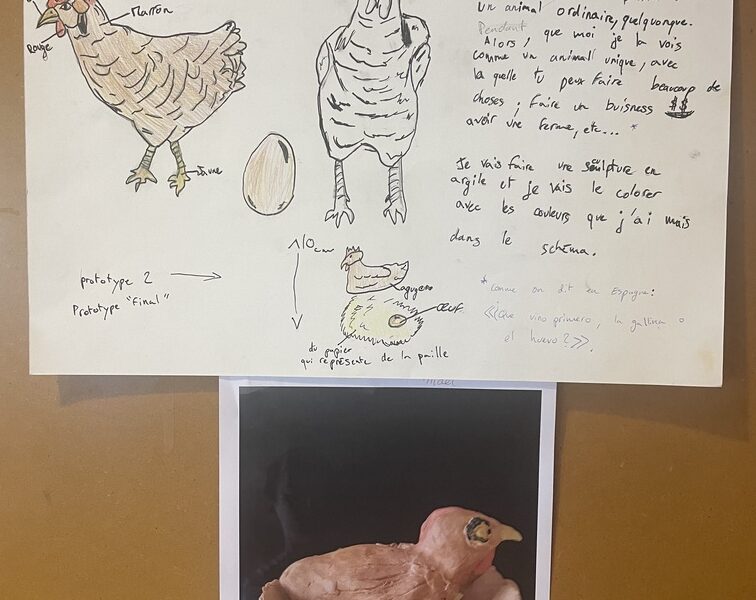 Marron
Rouge
Jaune
un animal ordinaire, quelquonque.
Pendant
Alors, que moi je la vois
comme un animal unique, avec
la quelle tu peux faire beaucoup de
choses; faire un buisness $$
avoir une ferme, etc... *
Je vais faire une sculpture en
argile et je vais le colorer
avec les couleurs que j'ai mais
dans le schéma.
10cm
prototype 2
Prototype "final"
œuf
du papier
qui représente de la paille
* comme on dit en Espagne:
<<¿Que vino primero, la gallina o
el huevo?>>.